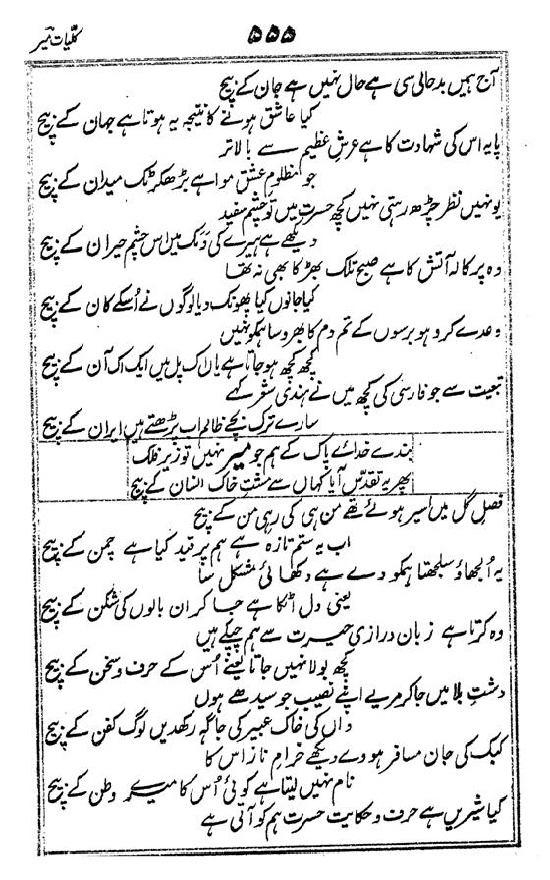 کلیات میر
۵۵۵
آج ہمیں بدحالی سی ہے حال نہیں ہے جان کے بیچ
کیا عاشق ہونے کا نتیجہ یہ ہوتا ہے جہان کے بیچ
پایہ اس کی شہادت کا ہے عرش عظیم سے بالاتر
جو مظلوم عشق موا ہے بڑھکر ٹک میدان کے بیچ
یونہیں نظر چڑھ رہتی نہیں کچھ حسرت میں تو چشم سفید
دیکھے ہے ہیرے کی دمک میں اس چشم حیران کے بیچ
وہ پرکالہ آتش کا ہے صبح تلک بھڑکا بھی نہ تھا
کیا جانوں کیا پھونک دیا لوگوں نے اسکے کان کے بیچ
وعدے کرو ہو برسوں کے تم دم کا بھروسا ہمکو نہیں
کچھ کچھ ہو جاتا ہے یاں اک پل میں ایک اک آن کے بیچ
تبعیت سے جو فارسی کی کچھ میں نے ہندی شعر کہے
سارے ترک بچے ظالم اب پڑھتے ہیں ایران کے بیچ
بندے خدائے پاک کے ہم جو میر نہیں تو زیر فلک
پھر یہ تقدس آیا کہاں سے مشت خاک انسان کے بیچ
فصل گل میں اسیر ہوئے تھے من ہی کی رہی من کے بیچ
اب یہ ستم تازہ ہے ہم پر قید کیا ہے چمن کے بیچ
یہ الجھاؤ سلجھتا ہمکو دے ہے دکھائی مشکل سا
یعنی دل اٹکا ہے جا کر ان بالوں کی شکن کے بیچ
وہ کرتا ہے زبان درازی حیرت سے ہم چپکے ہیں
کچھ بولا نہیں جاتا یعنے اُس کے حرف و سخن کے بیچ
دشت بلا میں جا کر مریے اپنے نصیب جو سیدھے ہوں
واں کی خاک عبیر کی جاگہ رکھدیں لوگ کفن کے بیچ
کبک کی جان مسافر ہووے دیکھے خرام ناز اس کا
نام نہیں لیتا ہے کوئی اُس کا میرے وطن کے بیچ
کیا شیریں ہے حرف و حکایت حسرت ہم کو آتی ہے